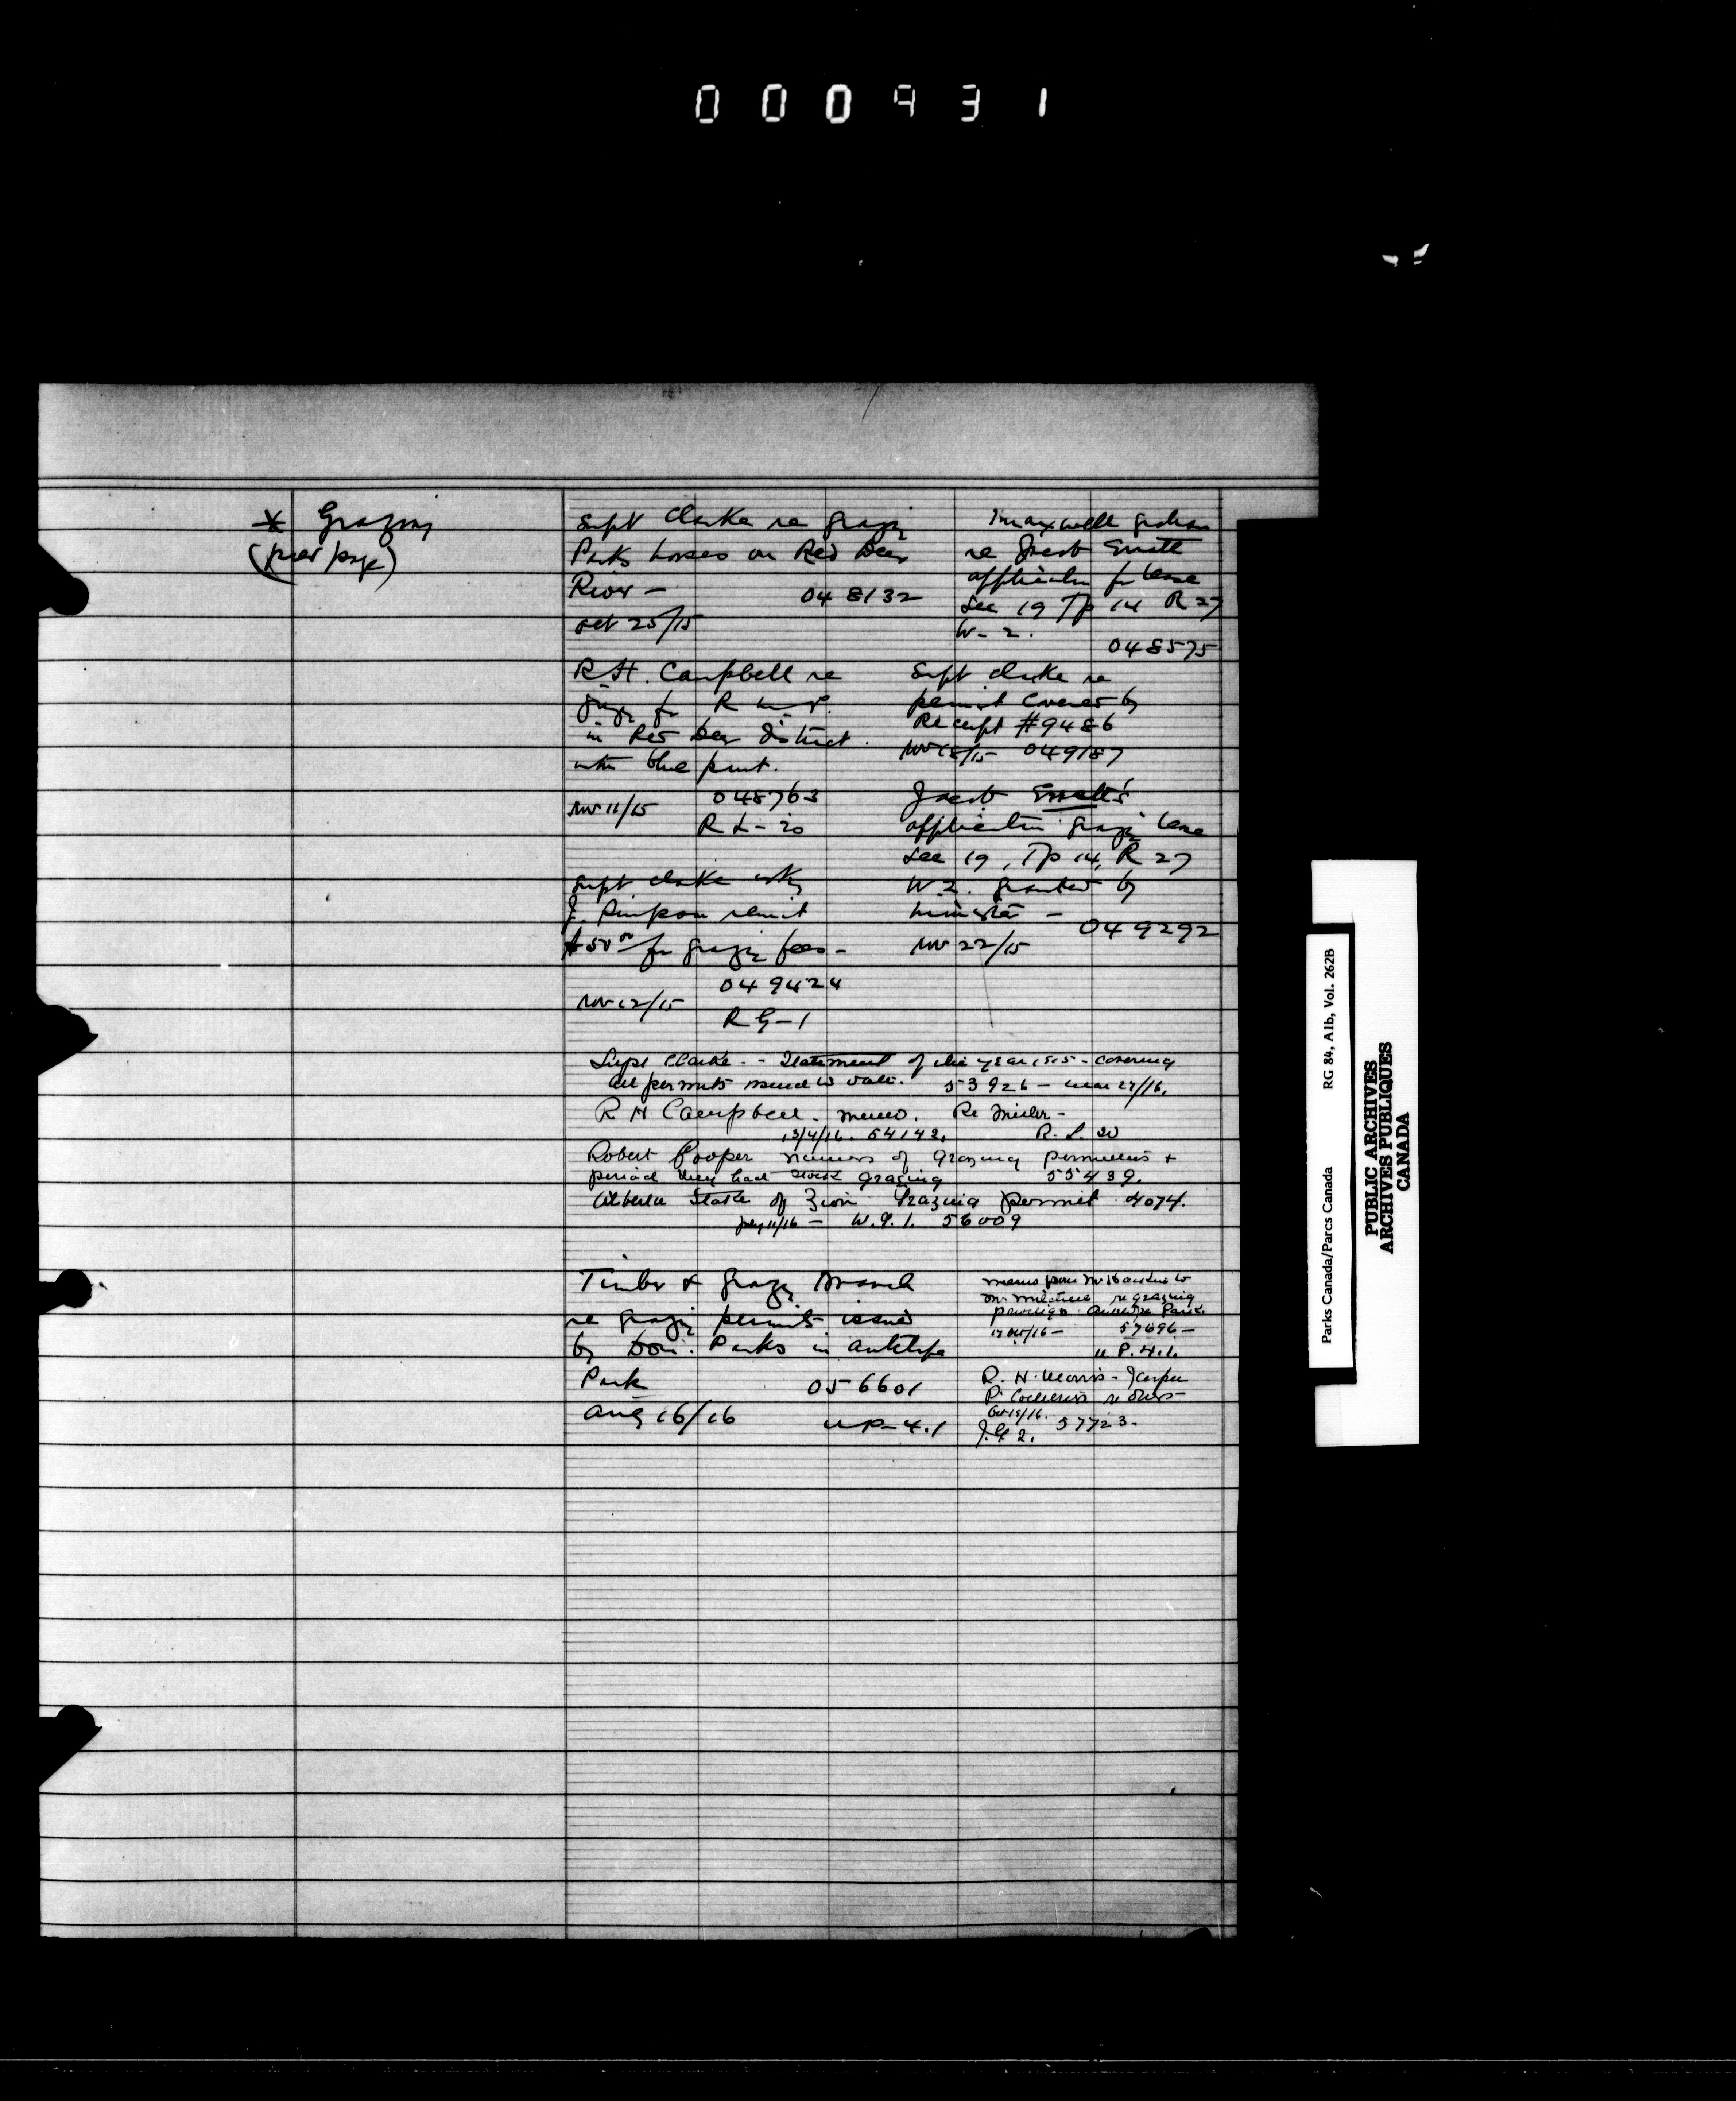 000931
* Grazing
(prev page)
Supt Clarke re grazg
Parks horses on Red Deer
River -
048132
Oct 25/15
Maxwell Graham
re Jacob Smith
application for lease
Sec 19 Tp 14 R 27
W-2.
048575
R.H. Campbell re
in Red Deer District.
with blue print.
Nov 11/15
048763
R L-20
Supt Clarke re
permit covered by
Receipt #9486
Nov 18/15 049187
Jacob
application grazg lease
Sec 19, Tp 14, R 27
W.2. granted by
Minister -
049292
Nov 22/15
Supt Clarke
J. Simpson remit
$50 for grazg fees -
Nov 12/15
049424
R G-1
Supt Clarke - Statement of the year 1915 - covering
all permits issued to date. 53926 - Mar 27/16.
R H Campbell - memo. Re Miller -
13/4/16. 54142. R. L. 20
Robert Cooper names of Grazing permittees +
period they had stock grazing 55439.
Alberta State of Zion Grazing permit 4074.
July 11/16 - W.G.1. 56009
Timber & Grazg Branch
re grazg permits issued
by Dom. Parks in Antelope
Park
056601
Aug 16/16
U P-4.1
Memo from Mr
Mr Mitchell re grazing
Antelope Park.
17 Oct/16 - 57696 -
U P.4.1.
R. H. Morris - Jasper
Oct 19/16. 57723.
J.G 2.
Parks Canada/Parcs Canada RG 84, Alb, Vol. 262B
PUBLIC ARCHIVES
ARCHIVES PUBLIQUES
CANADA